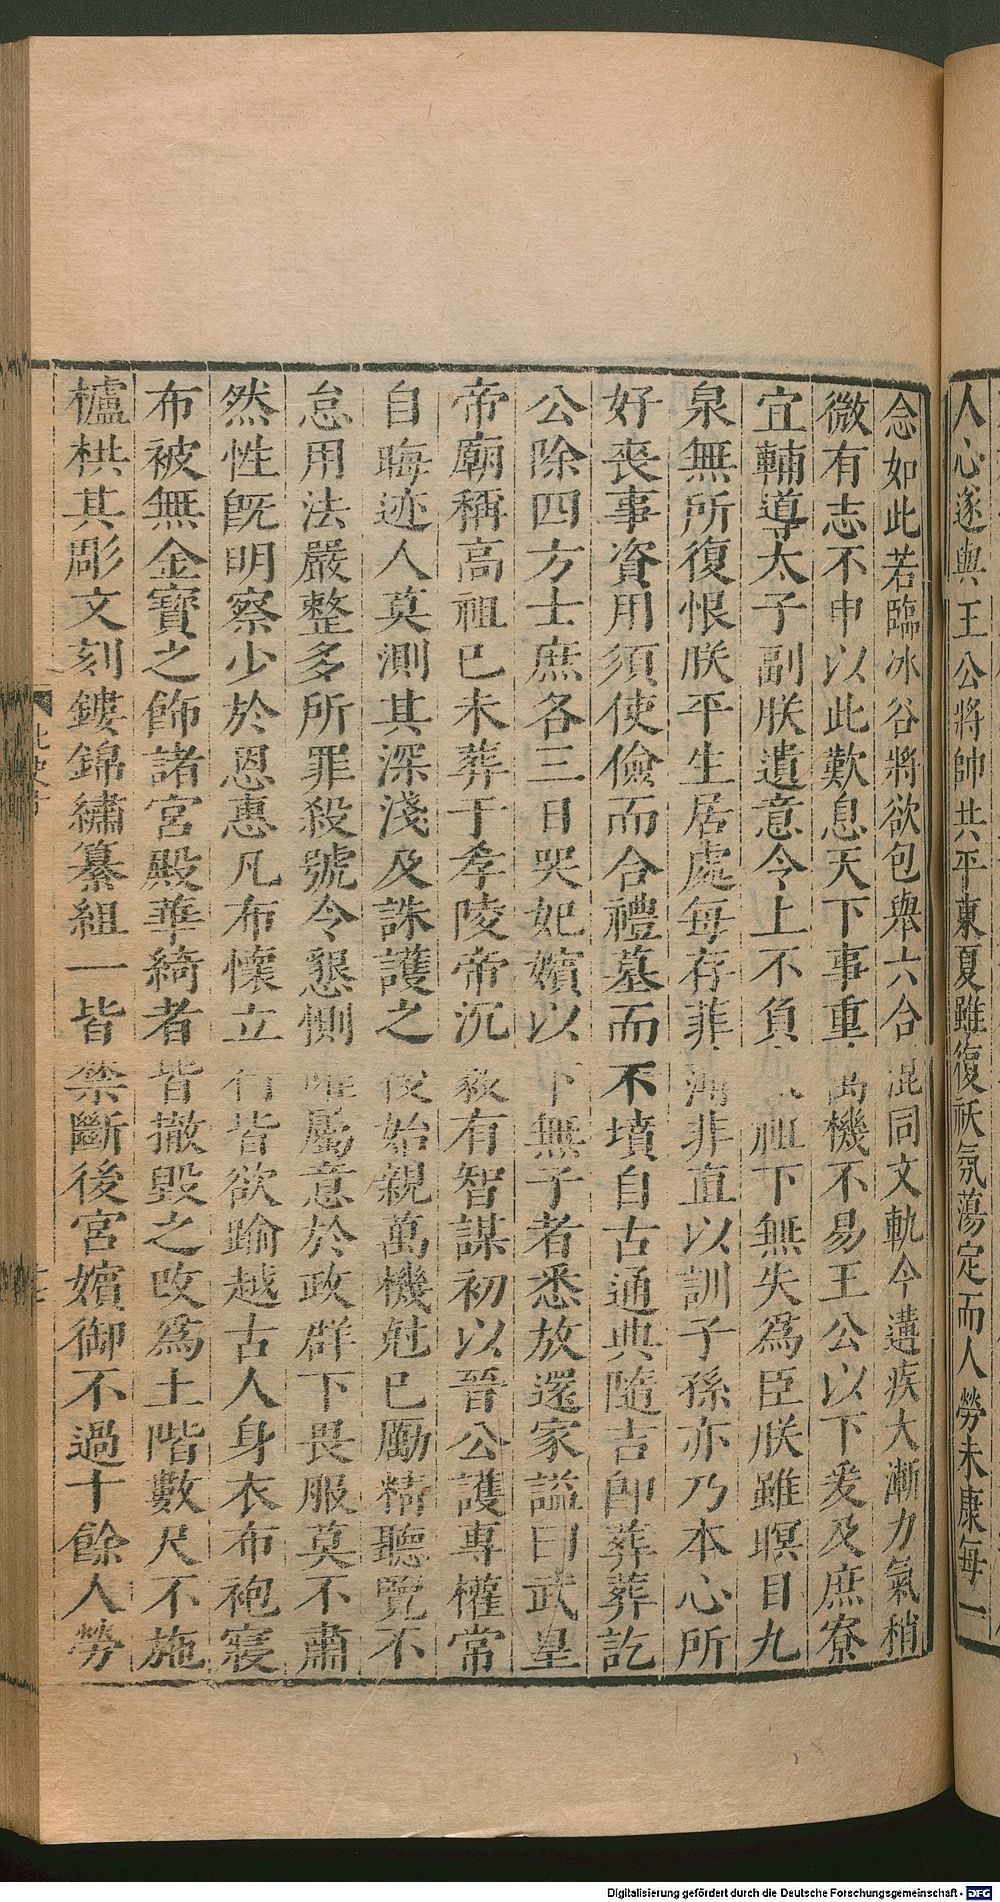 人心遂與王公將帥共平東夏雖復祅氛蕩定而人勞未康每一
念如此若臨冰谷將欲包舉六合混同文軌今遘疾大漸力氣稍
微有志不申以此歎息天下事重萬機不易王公以下爰及庶寮
宜輔導太子副朕遺意令上不負太祖下無失爲臣朕雖暝目九
泉無所復恨朕平生居處每存菲薄非直以訓子孫亦乃本心所
好喪事資用須使儉而合禮墓而不墳自古通典隨吉卽葬葬訖
公除四方士庶各三日哭妃嬪以下無子者悉放還家謚曰武皇
帝廟稱高祖巳未葬于孝陵帝沉毅有智謀初以晉公護專權常
自晦迹人莫測其深淺及誅護之後始親萬機尅巳勵精聽覽不
怠用法嚴整多所罪殺號令懇惻唯屬意於政群下畏服莫不肅
然性旣明察少於恩惠凡布懷立行皆欲踰越古人身衣布袍寢
布被無金寶之飾諸宮殿華綺者皆撤毀之攺爲土階數尺不施
櫨栱其彫文刻鏤錦繡纂組一皆禁斷後宮嬪御不過十餘人勞
Digitalisierung gefördert durch die Deutsche Forschungsgemeinschaft - DFG